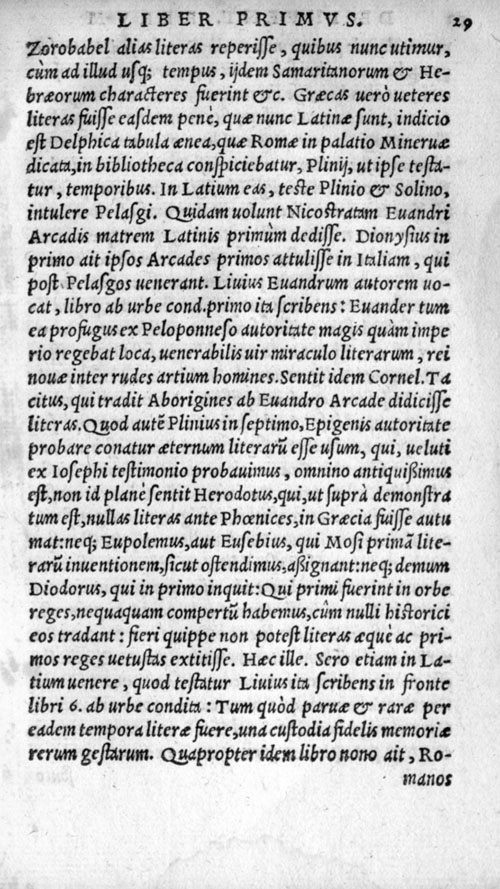 LIBER PRIMVS. 29
Zorobabel alias literas reperisse, quibus nunc utimur,
cùm ad illud usq; tempus, ijdem Samaritanorum & He-
bræorum characteres fuerint &c. Græcas uerò ueteres
literas fuisse easdem penè, quæ nunc Latinæ sunt, indicio
est Delphica tabula ænea, quæ Romæ in palatio Mineruæ
dicata, in bibliotheca conspiciebatur, Plinij, ut ipse testa-
tur, temporibus. In Latium eas, teste Plinio & Solino,
intulere Pelasgi. Quidam uolunt Nicostratam Euandri
Arcadis matrem Latinis primùm dedisse. Dionysius in
primo ait ipsos Arcades primos attulisse in Italiam, qui
post Pelasgos uenerant. Liuius Euandrum autorem uo-
cat, libro ab urbe cond. primo ita scribens: Euander tum
ea profugus ex Peloponneso autoritate magis quàm impe
rio regebat loca, uenerabilis uir miraculo literarum, rei
nouæ inter rudes artium homines. Sentit idem Cornel. Ta
citus, qui tradit Aborigines ab Euandro Arcade didicisse
literas. Quod autẽ Plinius in septimo, Epigenis autoritate
probare conatur æternum literarũ esse usum, qui, ueluti
ex Iosephi testimonio probauimus, omnino antiquißimus
est, non id planè sentit Herodotus, qui, ut suprà demonstra
tum est, nullas literas ante Phœnices, in Græcia fuisse autu
mat: neq; Eupolemus, aut Eusebius, qui Mosi primã lite-
rarũ inuentionem, sicut ostendimus, aßignant: neq; demum
Diodorus, qui in primo inquit: Qui primi fuerint in orbe
reges, nequaquam compertũ habemus, cùm nulli historici
eos tradant: fieri quippe non potest literas æquè ac pri-
mos reges uetustas extitisse. Hæc ille. Serò etiam in La-
tium uenere, quod testatur Liuius ita scribens in fronte
libri 6. ab urbe condita: Tum quòd paruæ & raræ per
eadem tempora literæ fuere, una custodia fidelis memoriæ
rerum gestarum. Quapropter idem libro nono ait, Ro-
manos